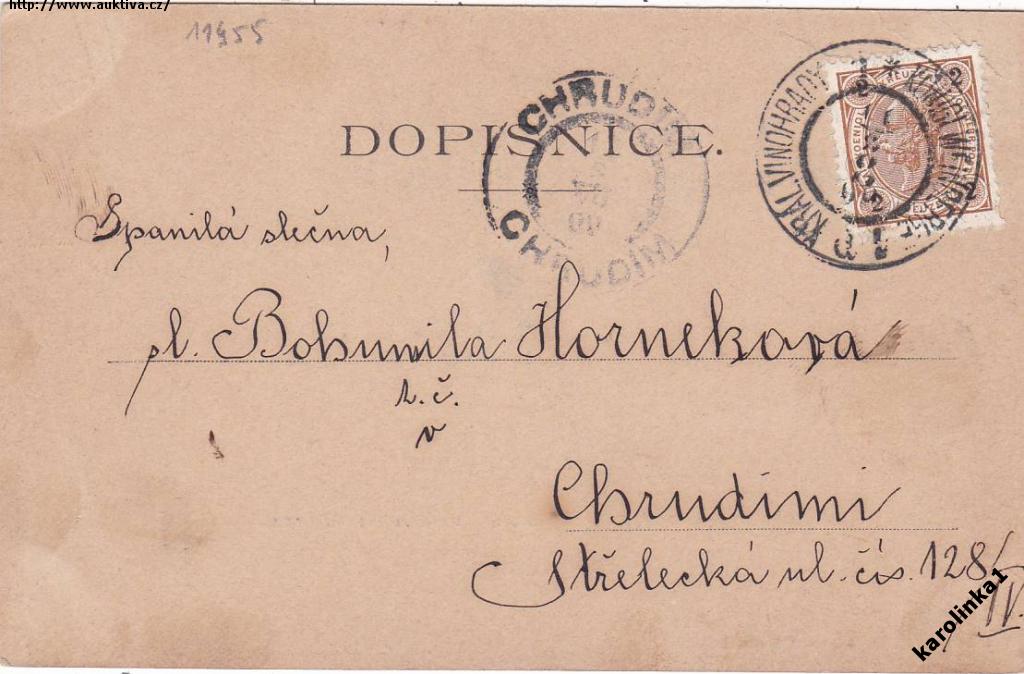 http://www.auktiva.cz/
11455
DOPISNICE.
CHRUDIM
CHRUDÍM
KRÁL. VINOHRADY
KÖNIGL. WEINBERGE
2
Spanilá slečna,
sl. Bohumila Horneková
t. č.
v
Chrudimi
Střelecká ul. čís. 128/
IV.
karolinka1